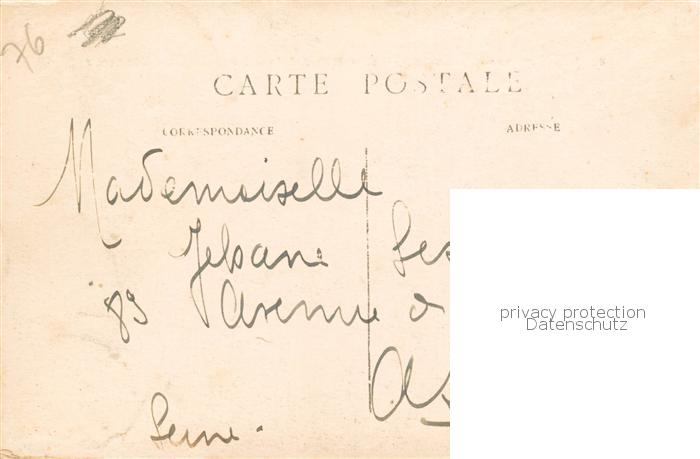 76
CARTE POSTALE
CORRESPONDANCE
ADRESSE
Mademoiselle
Jehane
89 Avenue d
privacy protection
Datenschutz
Seine.